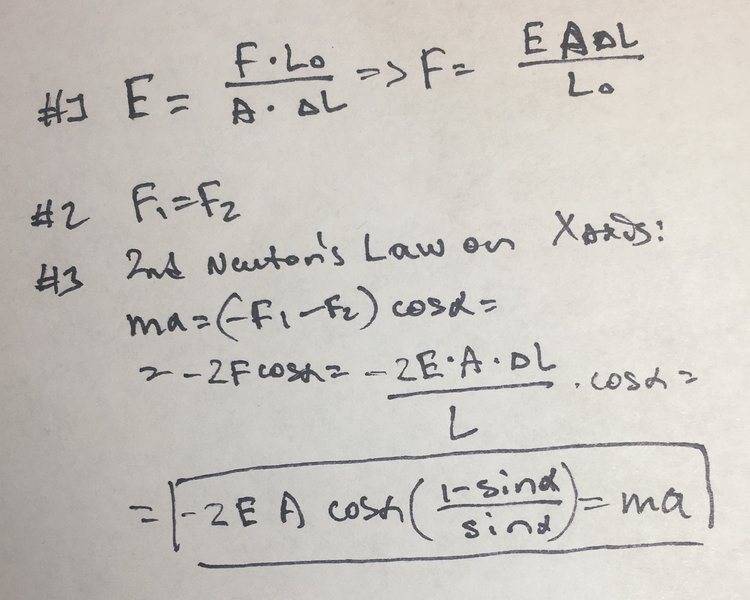 #1 E = F·L₀ / A·ΔL => F = E A ΔL / L₀
#2 F₁=F₂
#3 2nd Newton's Law on X axis:
ma=(-F₁-F₂) cosα=
= -2F cosα= - 2E·A·ΔL / L · cosα=
= -2 E A cosα (1-sinα / sinα) = ma